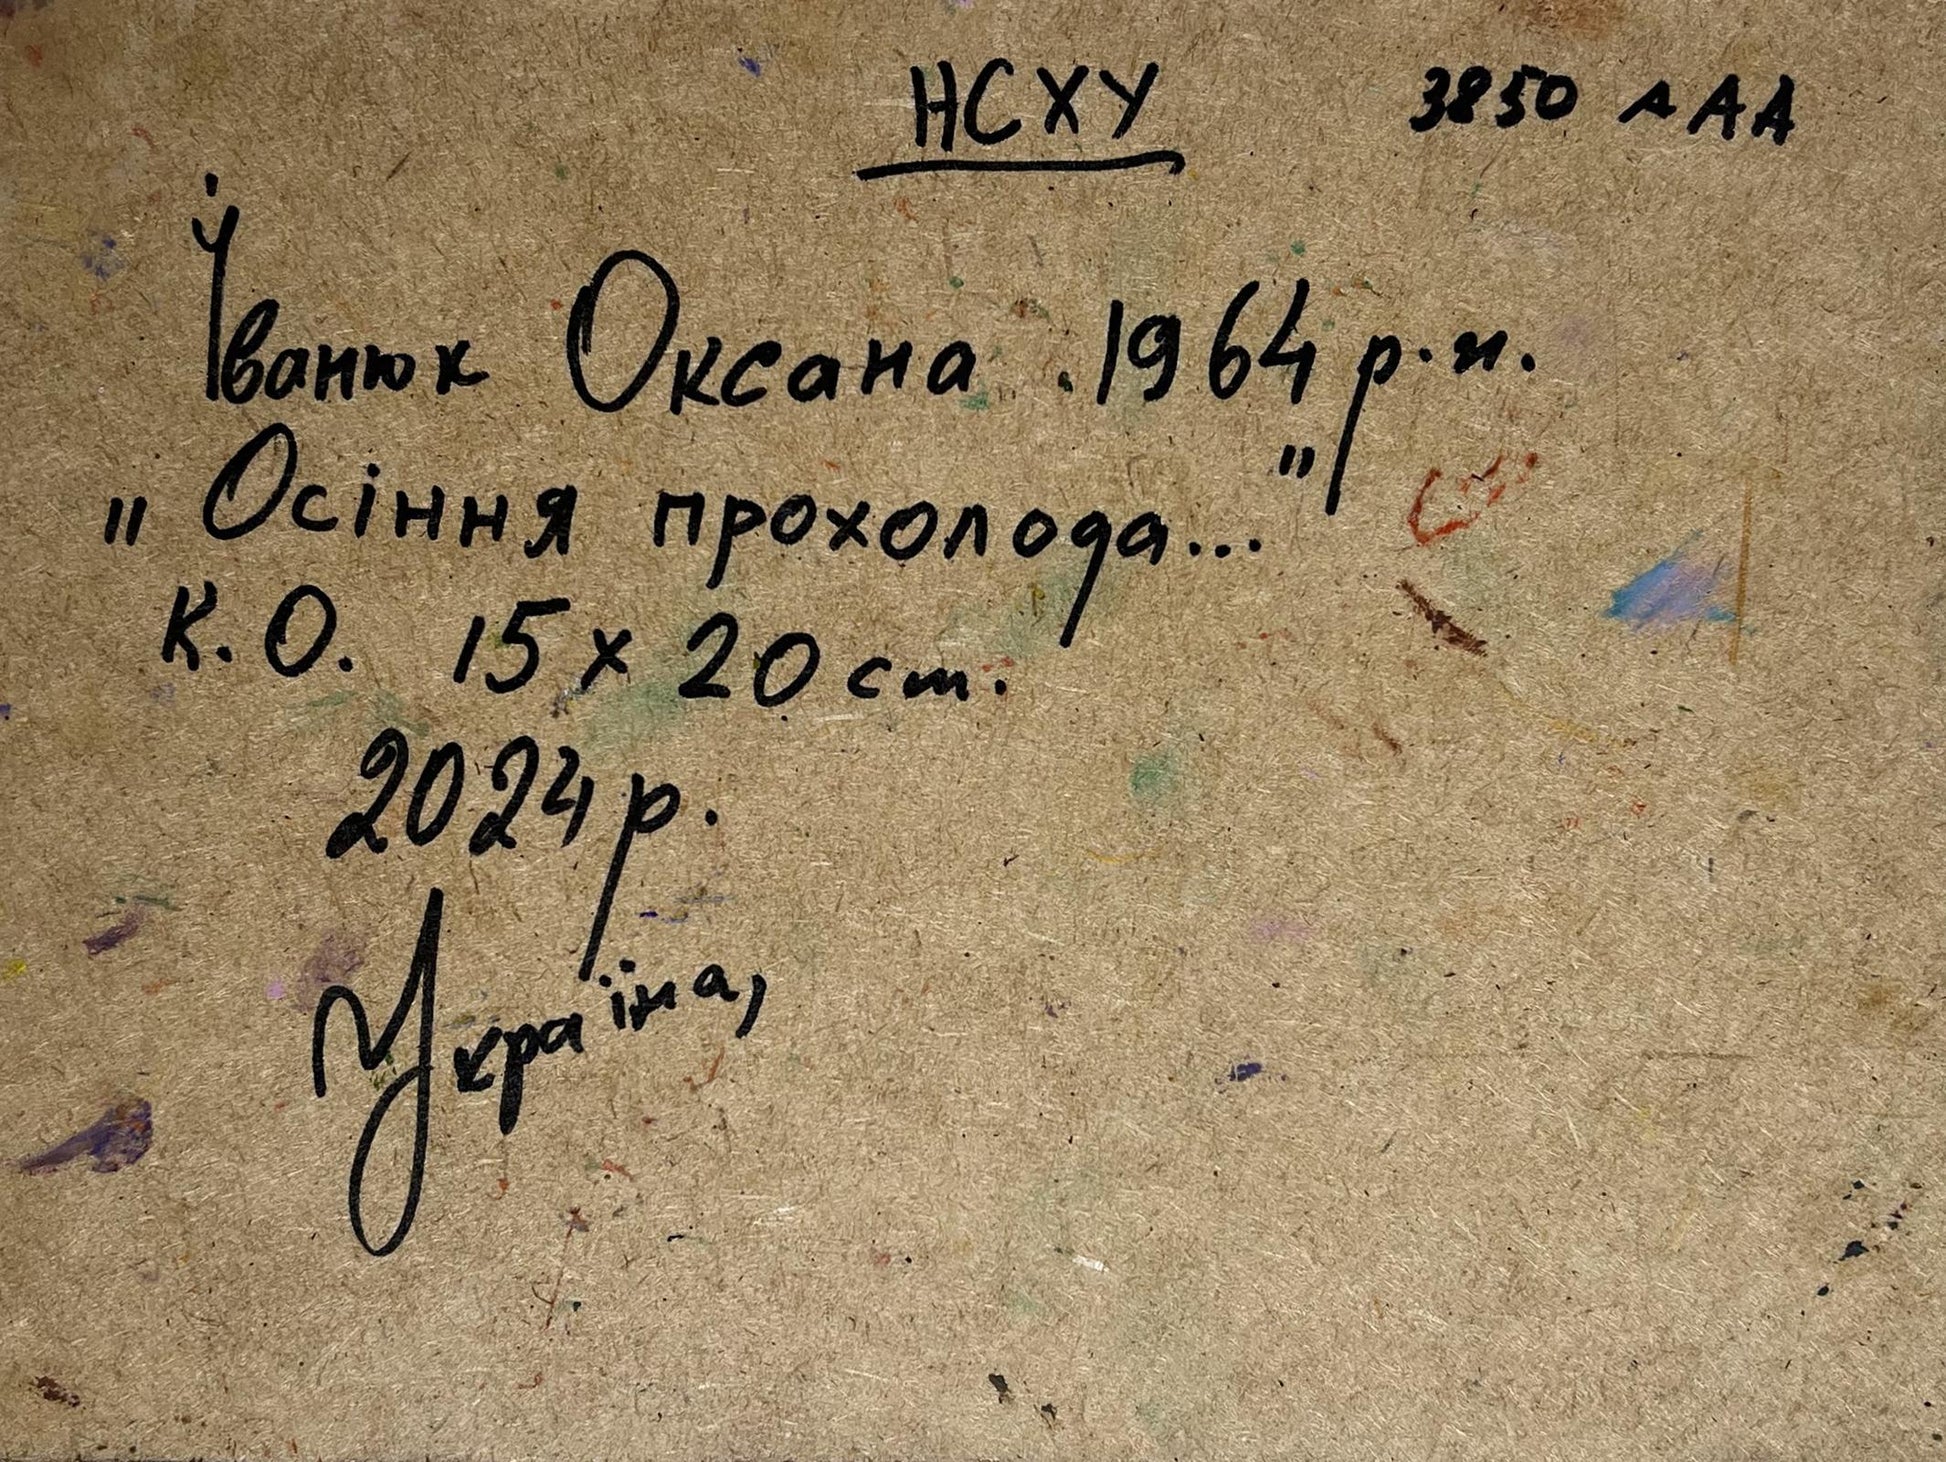 НСХУ 3850 ЛАА
Іванюк Оксана . 1964 р.н.
„Осіння прохолода..."
К.О. 15 х 20 см.
2024 р.
Україна,